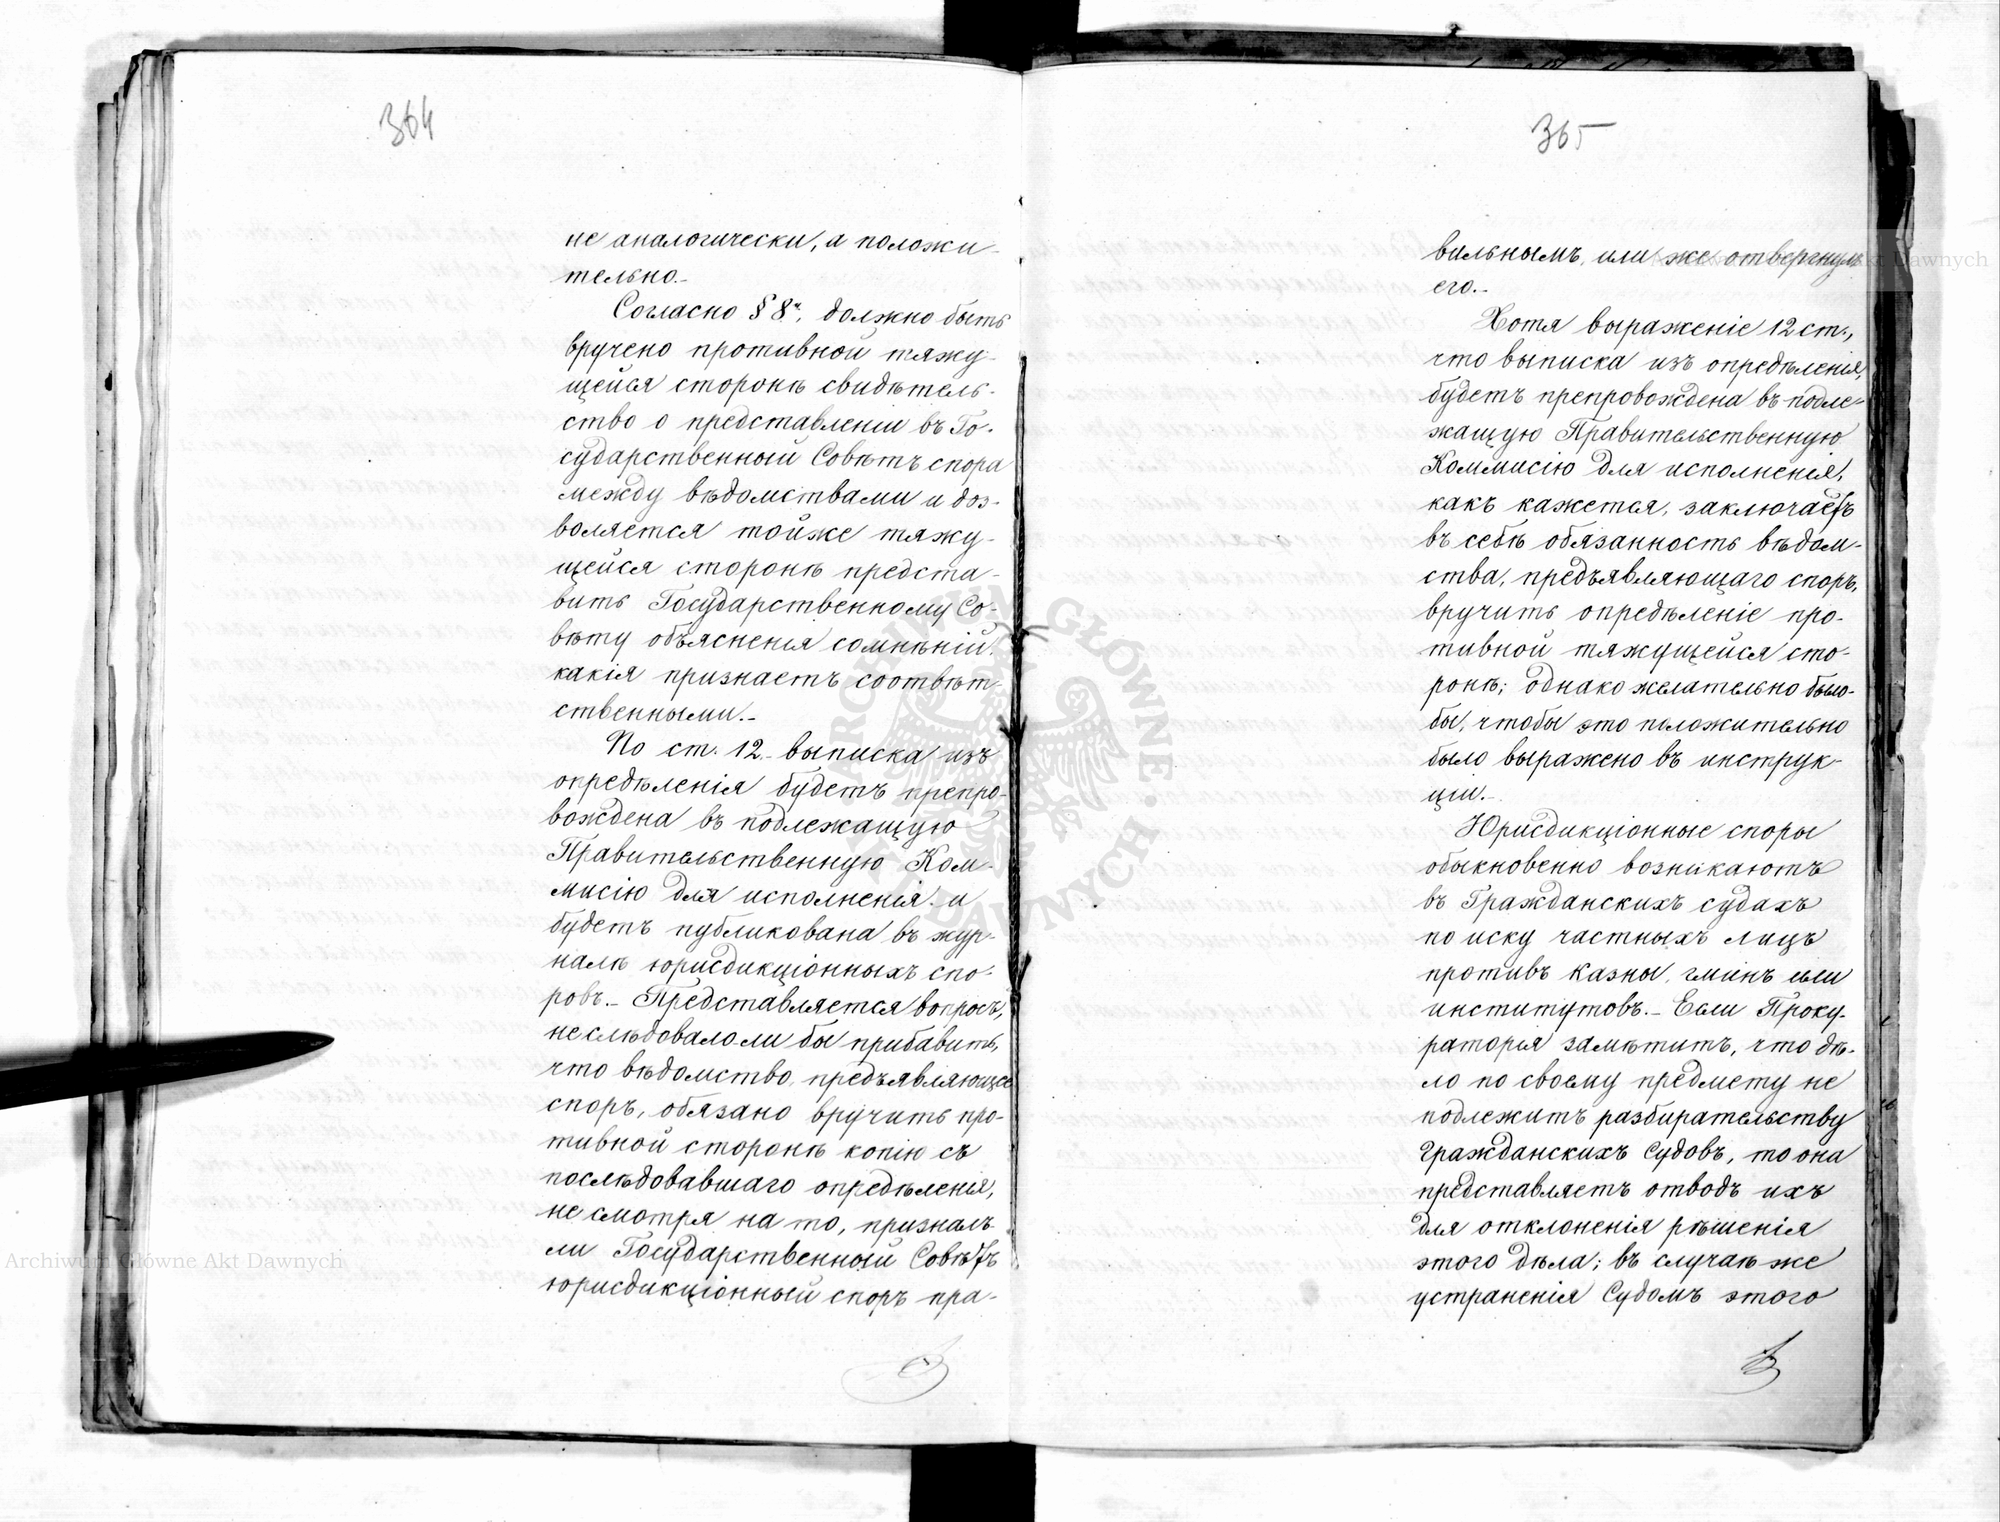 364
не аналогически, а положи-
тельно.-
Согласно § 8ч, должно быть
вручено противной тяжу-
щейся сторонѣ свидѣтель-
ство о представленіи въ Го-
сударственный Совѣтъ спора
между вѣдомствами и доз-
воляется тойже тяжу-
щейся сторонѣ предста-
вить Государственному Со-
вѣту объясненія сомнѣній,
какія признаетъ соотвѣт-
ственными.-
По ст. 12.- выписка изъ
опредѣленія будетъ препро-
вождена въ подлежащую
Правительственную Ком-
мисію для исполненія и
будетъ публикована въ жур-
налѣ юрисдикціонныхъ спо-
ровъ.- Представляется вопросъ,
не слѣдовало ли бы прибавить,
что вѣдомство, предъявляющее
споръ, обязано вручить про-
тивной сторонѣ копію съ
послѣдовавшаго опредѣленія,
не смотря на то, призналъ
ли Государственный Совѣтъ
юрисдикціонный споръ пра-
365
вильнымъ, или же отвергнулъ
его.-
Хотя выраженіе 12 ст.,
что выписка изъ опредѣленія,
будетъ препровождена въ подле-
жащую Правительственную
Коммисію для исполненія,
какъ кажется, заключаетъ
въ себѣ обязанность вѣдом-
ства, предъявляющаго споръ,
вручить опредѣленіе про-
тивной тяжущейся сто-
ронѣ; однако желательно было-
бы, чтобы это положительно
было выражено въ инструк-
ціи.-
Юрисдикціонные споры
обыкновенно возникаютъ
въ Гражданскихъ судахъ
по иску частныхъ лицъ
противъ казны, гминъ или
институтовъ.- Если Проку-
раторія замѣтитъ, что дѣ-
ло по своему предмету не
подлежитъ разбирательству
Гражданскихъ Судовъ, то она
представляетъ отводъ ихъ
для отклоненія рѣшенія
этого дѣла; въ случаѣ же
устраненія Судомъ этого
Archiwum Główne Akt Dawnych
Archiwum Główne Akt Dawnych
ARCHIWUM GŁÓWNE AKT DAWNYCH